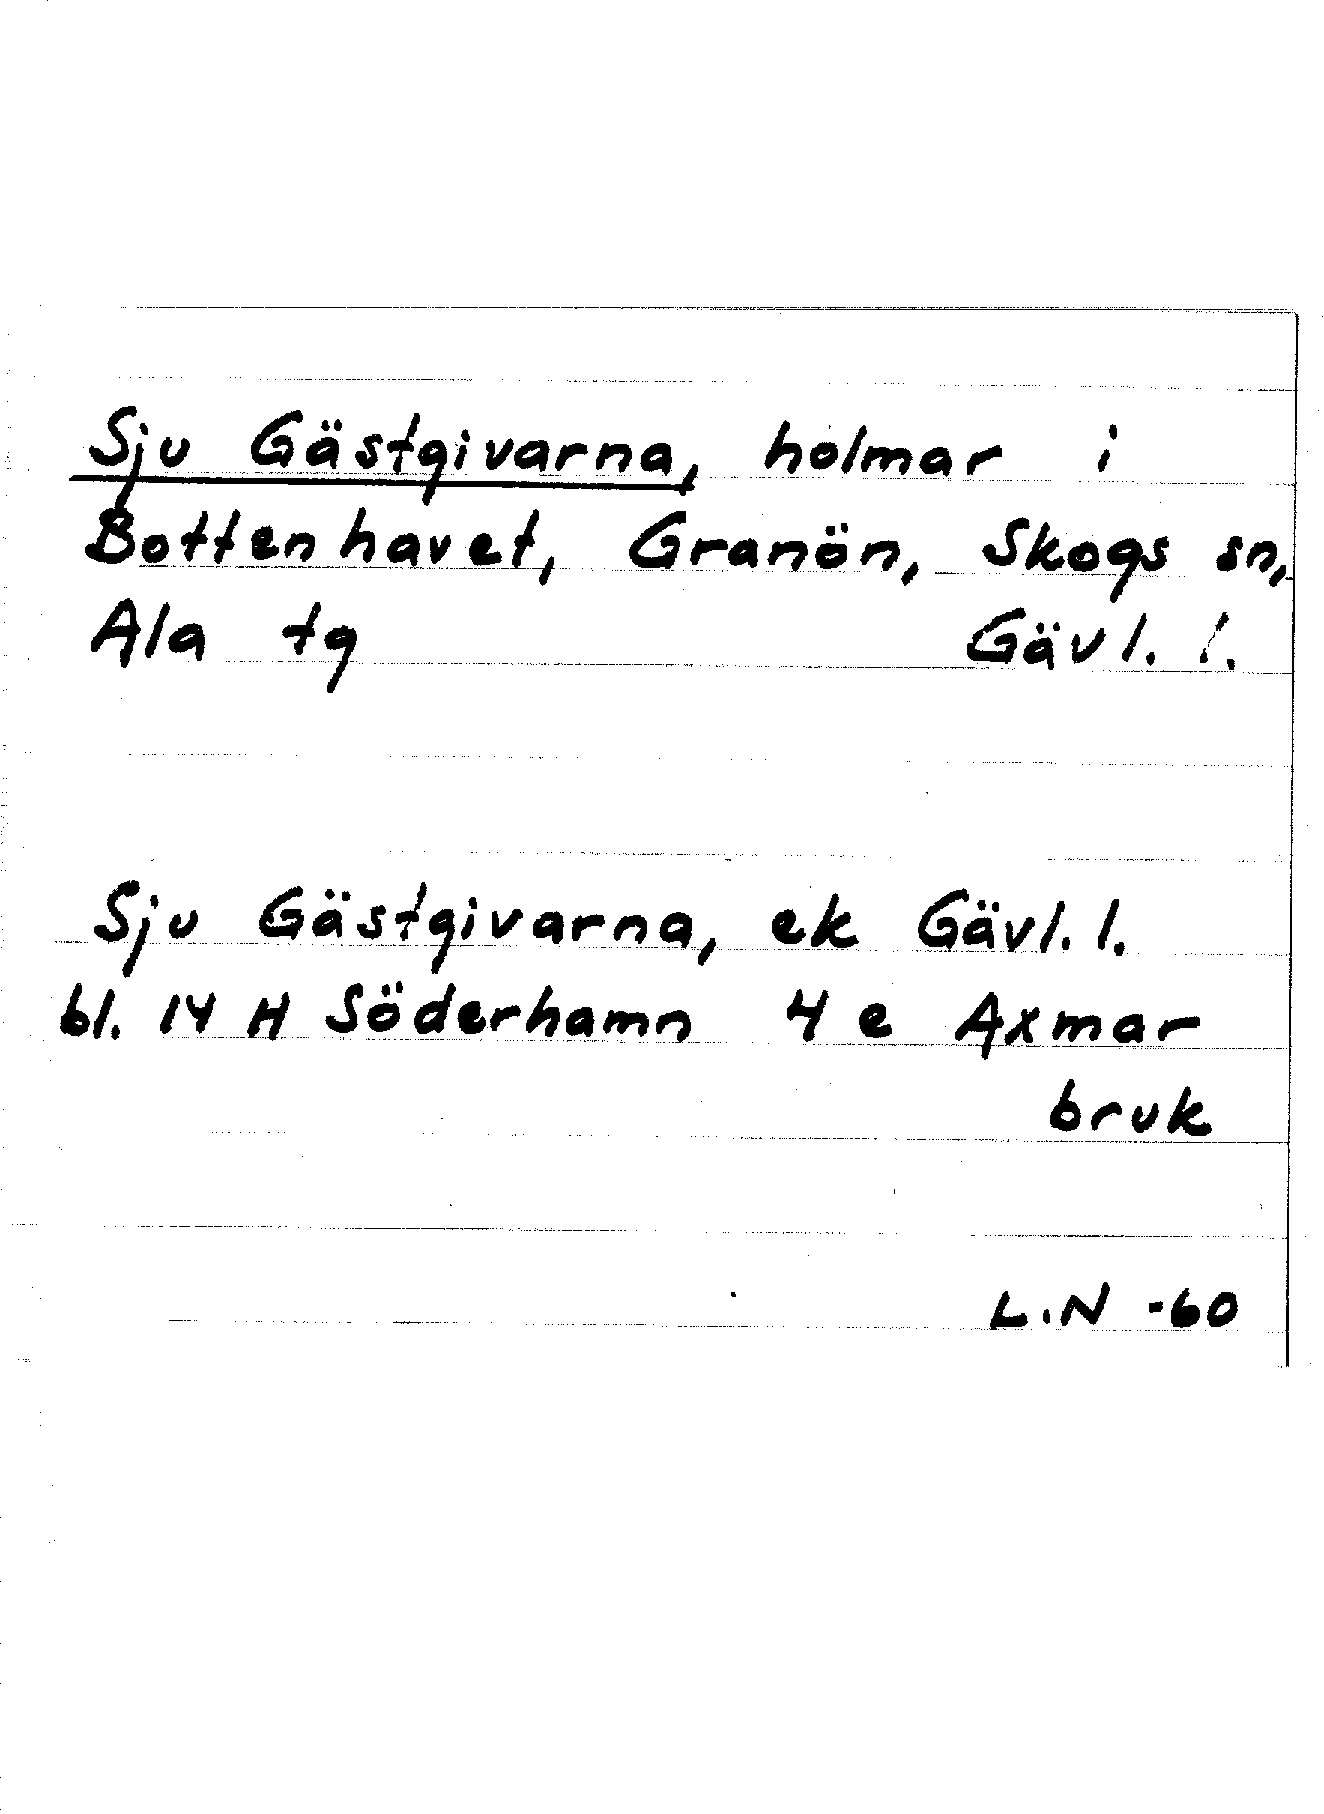 Sju Gästgivarna, holmar i
Bottenhavet, Granön, Skogs sn,
Ala tg Gävl. l.
Sju Gästgivarna, ek Gävl. l.
bl. 14 H Söderhamn 4 e Axmar
bruk
L.N -60